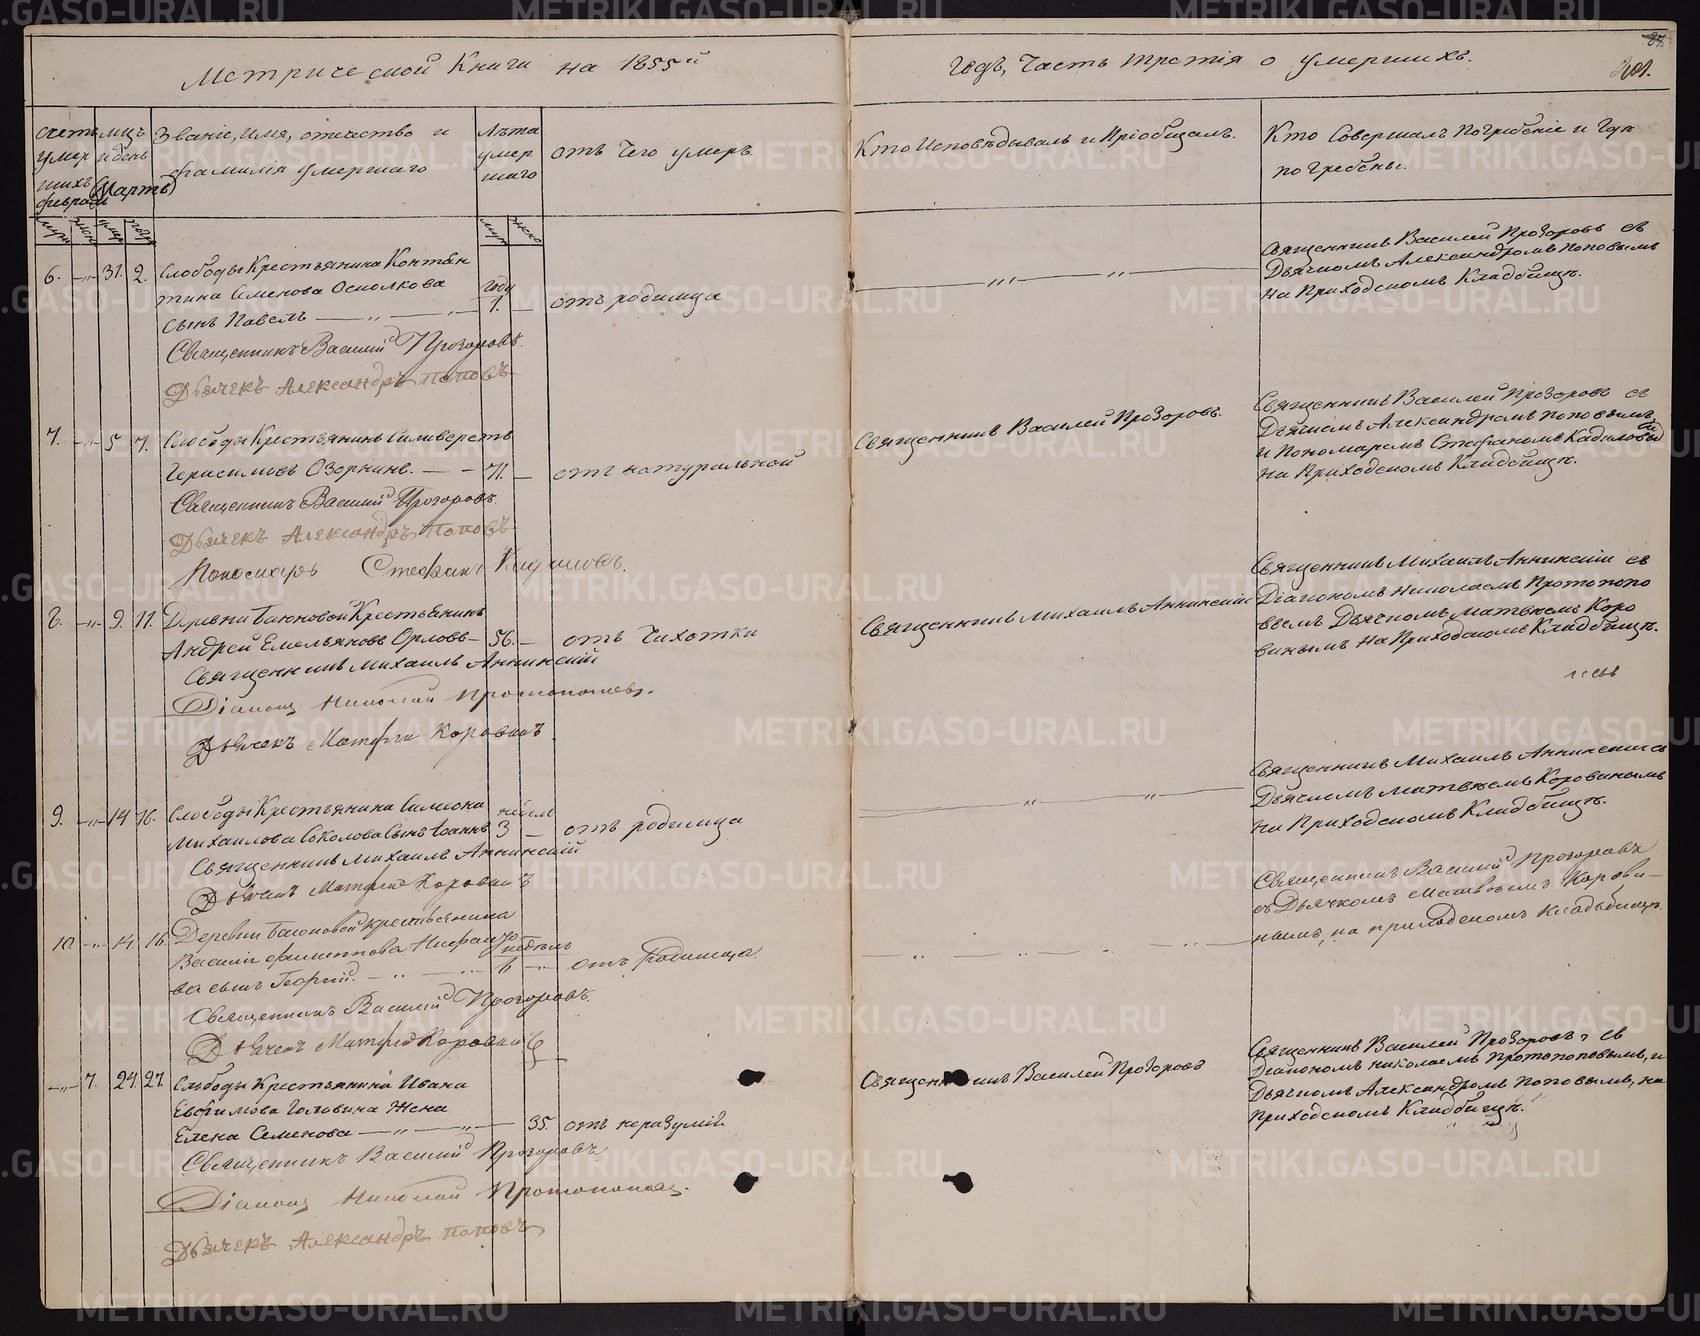 Метрической Книги на 1855й
годъ, Часть третія о умершихъ.
87.
401.
счетъ умершихъ
мцъ и день
Званіе, имя, отечество и фамилія умершаго
Лѣта умершаго
отъ чего умеръ
Кто Исповѣдывалъ и Пріобщалъ.
Кто Совершалъ Погребеніе и Гдѣ погребены.
февраль (Мартъ)
6. —„— 31. 2. Слободы Крестьянина Контан
тина Семенова Осколкова
году
сынъ Павелъ —„—„— 1. — отъ родимца
—„—„—
Священникъ Василей Прозоровъ съ
Дьячкомъ Александромъ Поповымъ
На Приходскомъ Кладбищѣ.
Священникъ Василій Прозоровъ.
Дьячекъ Александръ Поповъ
7. —„— 5. 7. Слободы Крестьянинъ Силиверстъ
Герасимовъ Озорнинъ. — — 71. — отъ натуральной
Священникъ Василей Прозоровъ.
Священникъ Василей Прозоровъ съ
Дьячкомъ Александромъ Поповымъ,
и Пономаремъ Стефаномъ Кадиловы
На Приходскомъ Кладбищѣ.
Священникъ Василій Прозоровъ
Дьячекъ Александръ Поповъ
Пономарь Стефанъ Кадиловъ.
8. —„— 9. 11. Деревни Баюновой Крестьянинъ
Андрей Емельяновъ Орловъ — 56. — отъ Чихотки
Священникъ Михаилъ Аннинскій
Священникъ Михаилъ Аннинскій съ
Діакономъ Николаемъ Протопопо
вымъ Дьячкомъ Матвѣемъ Коро
винымъ На Приходскомъ Кладбищѣ.
Священникъ Михаилъ Аннинскій
Діаконъ Николай Протопоповъ.
Дьячекъ Матфій Коровинъ
9. —„— 14 16. Слободы Крестьянина Симеона
недел
Михаилова Соколова Сынъ Іоаннъ 3 — отъ родимца
—„—„—
Священникъ Михаилъ Аннинскій съ
Дьячкомъ Матвѣемъ Коровинымъ
На Приходскомъ Кладбищѣ.
Священникъ Михаилъ Аннинскій
Дьячекъ Матфій Коровинъ
10. —„— 14. 16. Деревни Баюновой крестьянина
Василія Филиппова Никифоро
недѣль
ва сынъ Георгій. —„—„— 6 —„— отъ Родимца
—„—„—„—
Священникъ Василій Прозоровъ
съ Дьячкомъ Матвѣемъ Корови-
нымъ, на приходскомъ кладбищѣ
Священникъ Василій Прозоровъ.
Дьячекъ Матфій Коровинъ
—„— 7. 24. 27. Слободы Крестьянина Ивана
Евфимова Головина Жена
Елена Семенова —„—„— 35. отъ неразумій
Священникъ Василей Прозоровъ
Священникъ Василей Прозоровъ, съ
Діакономъ Николаемъ Протопоповымъ, и
Дьячкомъ Александромъ Поповымъ, на
Приходскомъ Кладбищѣ.
Священникъ Василій Прозоровъ
Діаконъ Николай Протопоповъ.
Дьячекъ Александръ Поповъ
METRIKI.GASO-URAL.RU